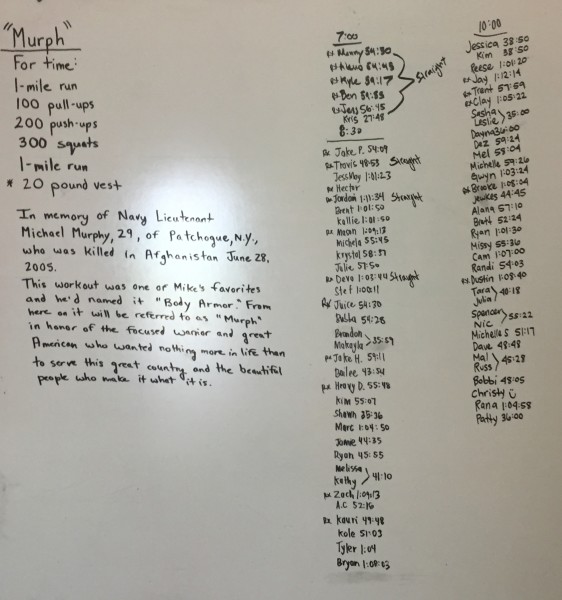 "Murph"
For time:
1-mile run
100 pull-ups
200 push-ups
300 squats
1-mile run
* 20 pound vest
In memory of Navy Lieutenant
Michael Murphy, 29, of Patchogue, N.Y.,
who was killed in Afghanistan June 28,
2005.
This workout was one of Mike's favorites
and he'd named it "Body Armor." From
here on it will be referred to as "Murph"
in honor of the focused warrior and great
American who wanted nothing more in life than
to serve this great country and the beautiful
people who make it what it is.
7:00
Rx Manny 54:30
Rx
Rx Kyle 59:17
Rx Ben
Rx Jess 56:45
Straight
Kris 27:48
8:30
Rx Jake P. 54:09
Rx Travis 48:53 Straight
Jess May 1:01:23
Rx Hector
Rx Jordan 1:11:34 Straight
Brent 1:01:50
Kallie 1:01:50
Rx 1:09:13
Michela 55:45
Krystal 58:37
Julie 57:50
Rx Devo 1:03:44 Straight
Stef 1:00:11
Rx Juice 54:30
Bubba 54:28
Brandon
Makayla 35:59
Rx Jake H. 59:11
Bailee 43:54
Rx Heavy D. 55:48
Kim 55:07
Shawn 35:36
Marc 1:04:50
Jamie 44:35
Ryan 45:55
Melissa
Kathy 41:10
Rx Zach 1:09:13
A.C 52:16
Rx Kauri 49:48
Kole 51:03
Tyler 1:04
Bryan 1:08:03
10:00
Jessica 38:50
Kim 38:50
Reese 1:01:20
Rx Jay 1:12:14
Rx Trent 57:59
Rx Clay 1:05:22
Sasha
Leslie 35:00
Dayna 36:00
Daz 59:24
Mel 58:04
Michelle 59:26
Gwyn 1:03:24
Rx Brooke 1:05:04
Jewkes 44:45
Alana 57:10
Brett 52:24
Ryan 1:01:30
Missy 55:36
Cam 1:07:00
Randi 54:03
Rx Dustin 1:08:40
Tara
Julia 40:18
Spencer
Nic 55:22
Michelle S 51:17
Dave 48:48
Mal
Russ 45:28
Bobbi 48:05
Christy
Rana 1:04:58
Patty 36:00